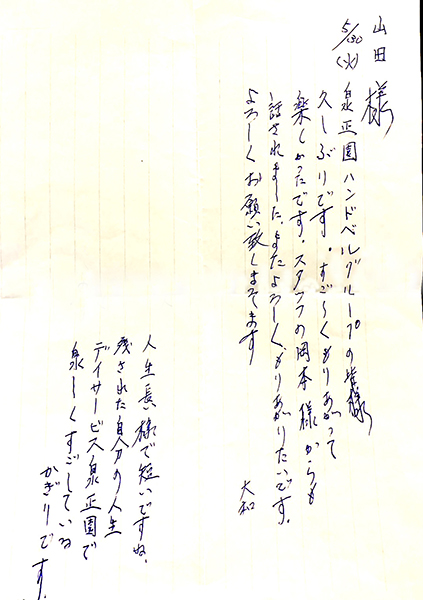 山田 様
5/30(火)
泉正園ハンドベルグループの皆様
久しぶりです。すご〜くもりあがって
楽しかったです。スタッフの岡本様からも
話されました。またよろしくもりあがりたいです。
よろしくお願い致しまてます
大和
人生長い様で短いですね。
残された自分の人生
デイサービス泉正園で
泉しくすごしている
かぎりです。